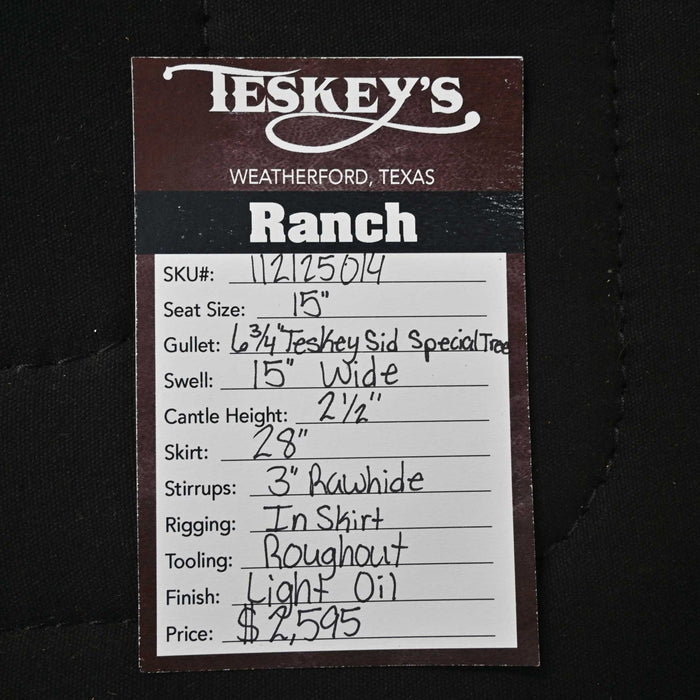 TESKEY'S
WEATHERFORD, TEXAS
Ranch
SKU#: 112125014
Seat Size: 15"
Gullet: 6 3/4" Teskey Sid Special Tree
Swell: 15" Wide
Cantle Height: 2 1/2"
Skirt: 28"
Stirrups: 3" Rawhide
Rigging: In Skirt
Tooling: Roughout
Finish: Light Oil
Price: $2,595